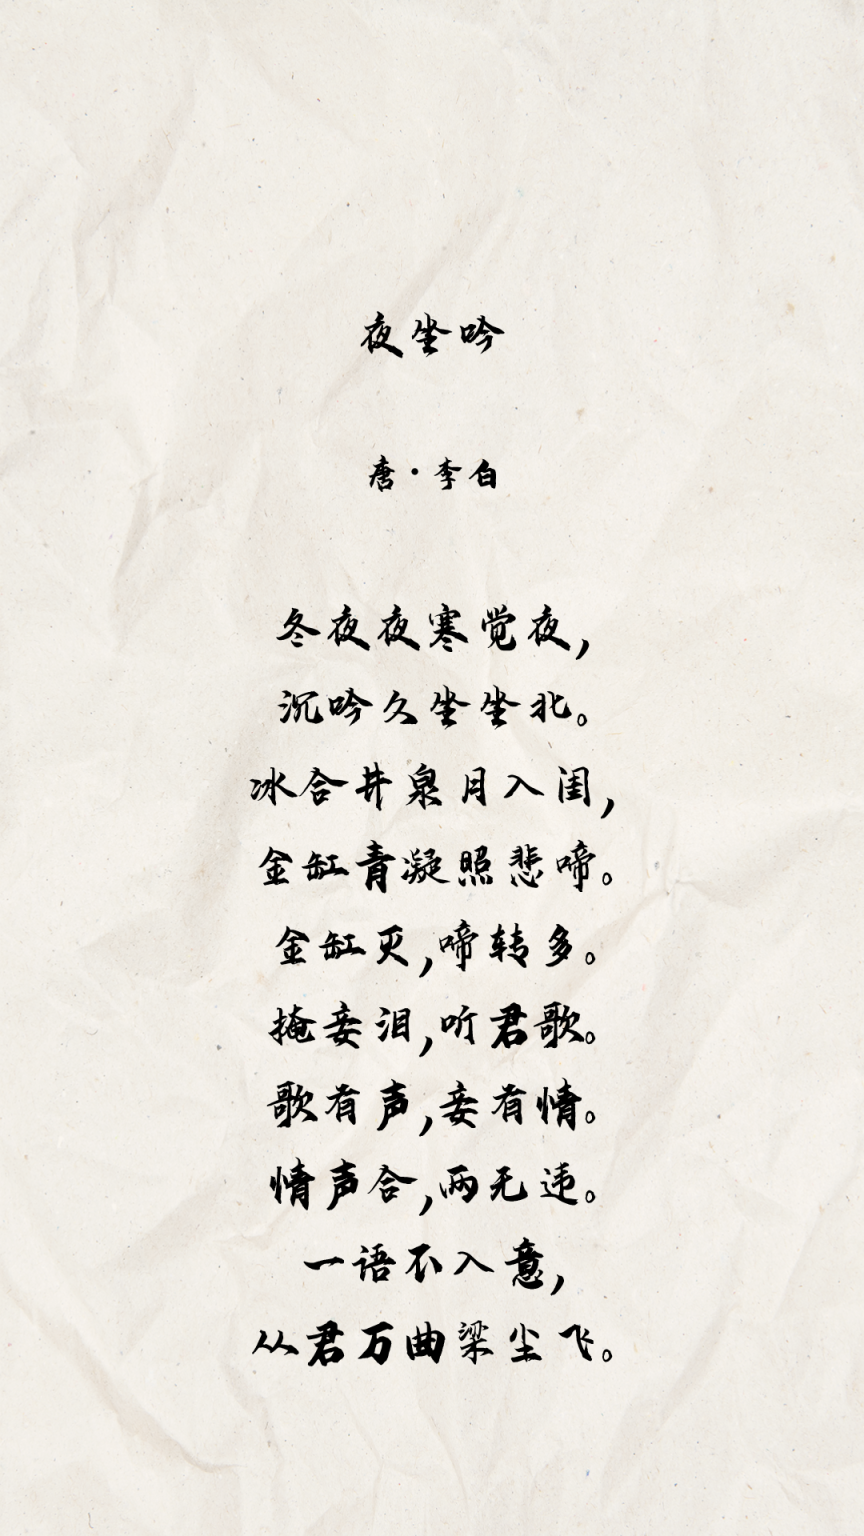 夜坐吟
唐·李白
冬夜夜寒觉夜，
沉吟久坐坐北。
冰合井泉月入闺，
金缸青凝照悲啼。
金缸灭，啼转多。
掩妾泪，听君歌。
歌有声，妾有情。
情声合，两无违。
一语不入意，
从君万曲梁尘飞。